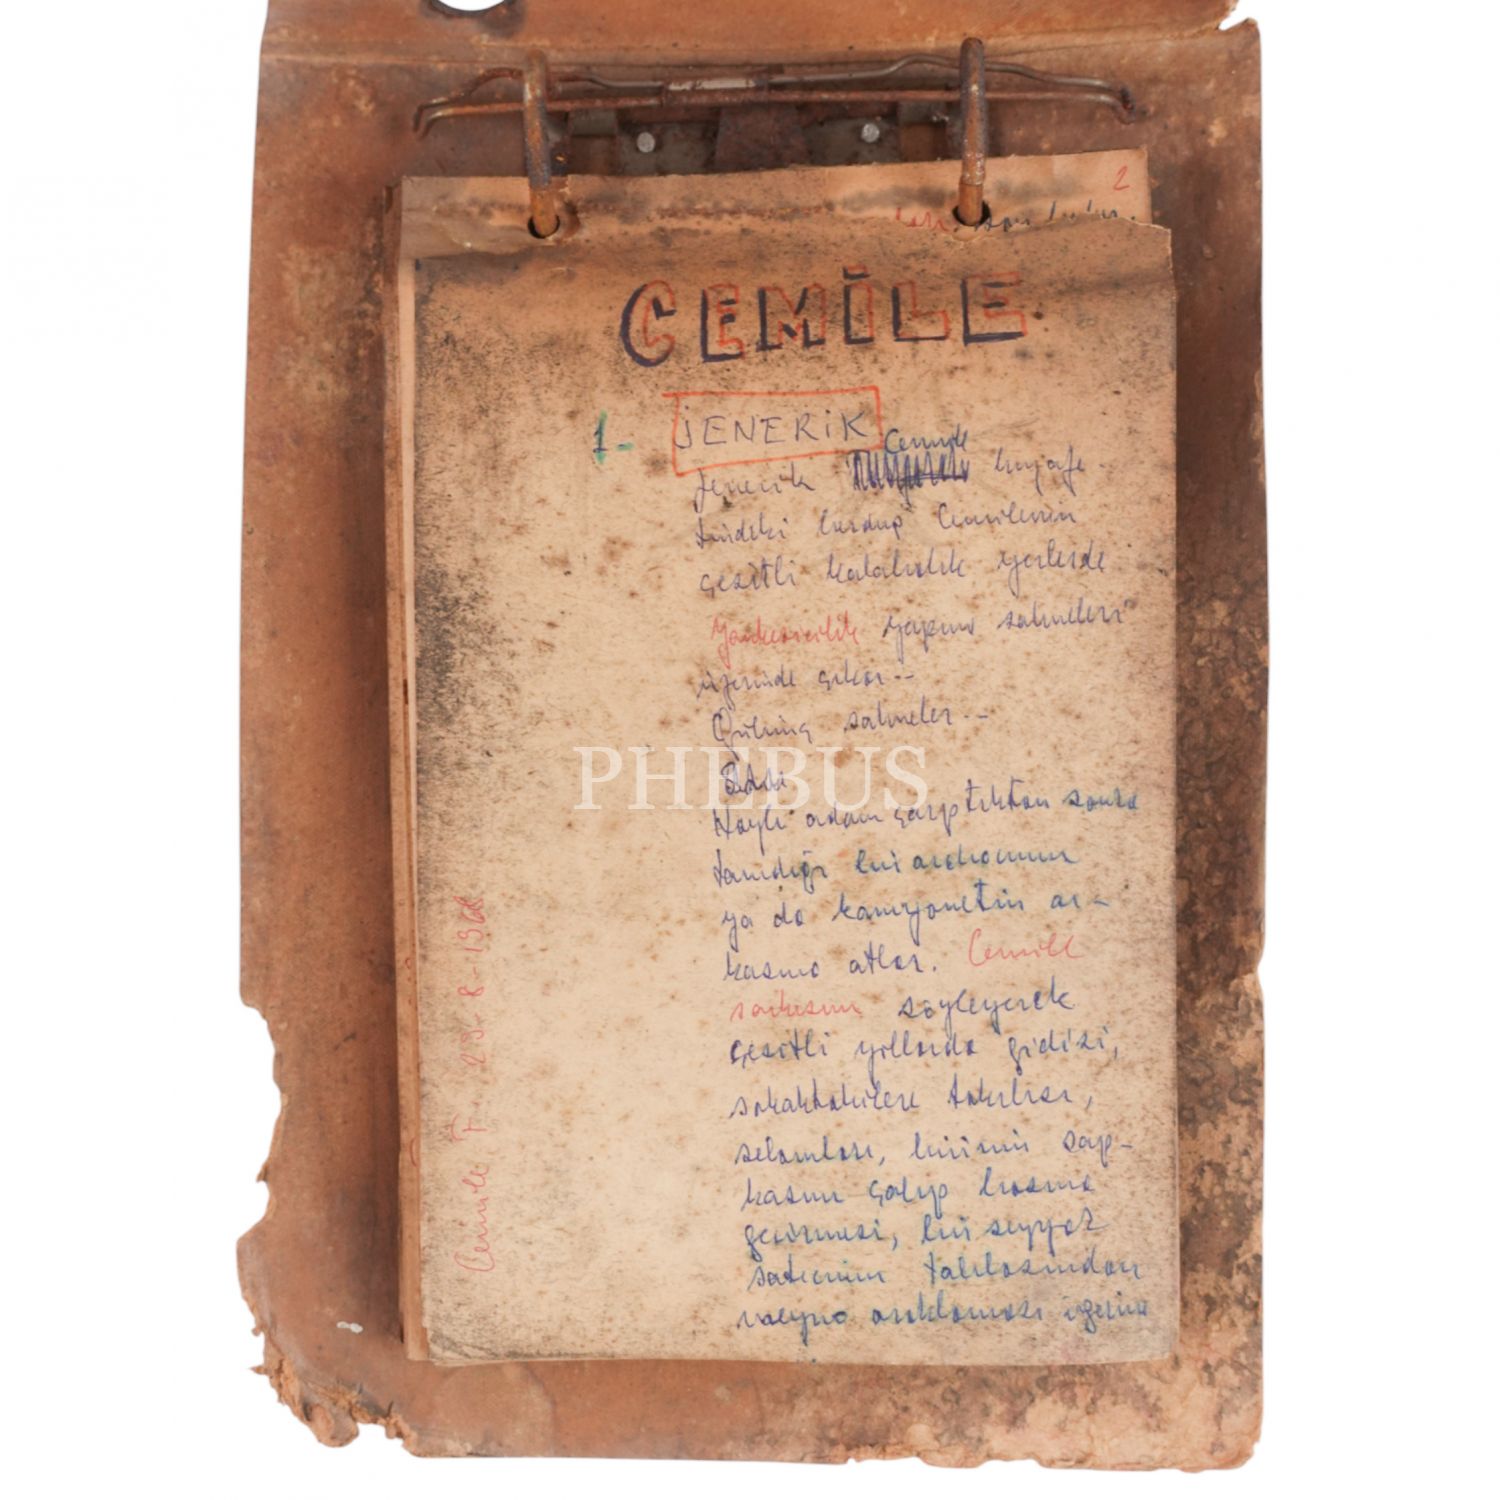 2
son
CEMİLE
1- JENERİK
Cemile
jenerik kıyafe-
tindeki Cemilenin
çeşitli kalabalık yerlerde
Yankesicilik yapma sahneleri
üzerinde çıkar--
Gülünç sahneler--
Hayli adam çarptıktan sonra
tanıdığı bir arabanın
ya da kamyonetin ar-
kasına atlar. Cemile
şarkısını söyleyerek
çeşitli yollarda gidişi,
sokaktakilere takılışı,
selamları, birinin şap-
kasını çalıp başına
geçirmesi, bir seyyar
satıcının tablasından
meyva araklaması üzerine
Cemile F. 29-8-1968
PHEBUS